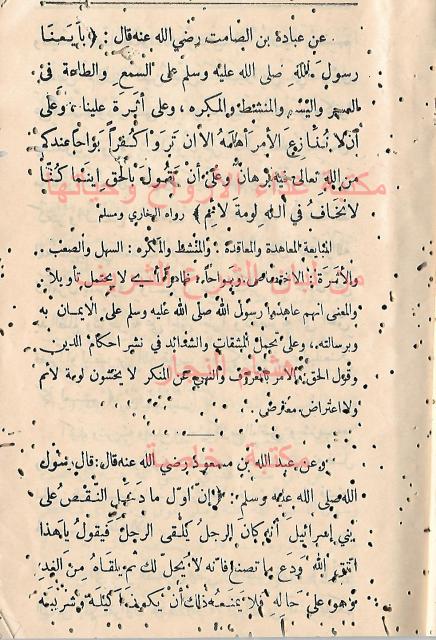 عن عبادة بن الصامت رضي الله عنه قال : ﴿ بايعنا
رسول الله صلى الله عليه وسلم على السمع والطاعة في
العسر واليسر والمنشط والمكره ، وعلى أثرة علينا ، وعلى
أن لا ننازع الأمر أهله إلا ان تروا كفراً بواحاً عندكم
من الله تعالى فيه برهان وعلى أن نقول بالحق اينما كنا
لا نخاف في الله لومة لائم ﴾ رواه البخاري ومسلم
المبايعة المعاهدة والمعاقدة . والمنشط والمكره : السهل والصعب .
والأثرة : الاختصاص . وبواحاً : لا يحتمل تأويلاً
والمعنى انهم عاهدوا رسول الله صلى الله عليه وسلم على الايمان به
وبرسالته ، وعلى تحمل المشقات والشدائد في نشر احكام الدين
وقول الحق والأمر بالمعروف والنهي عن المنكر لا يخشون لومة لائم
ولا اعتراض معترض .
وعن عبد الله بن مسعود رضي الله عنه قال : قال رسول
الله صلى الله عليه وسلم : ﴿ إن أول ما دخل النقص على
بني إسرائيل أنه كان الرجل يلقى الرجل فيقول يا هذا
اتق الله ودع ما تصنع فانه لا يحل لك ثم يلقاه من الغد
وهو على حاله فلا يمنعه ذلك أن يكون أكيله وشريبه
مكتبة غذاء الأرواح وحياتها
من لبان الشرع الشريف
هشيم النجار
مكتبة خاصة